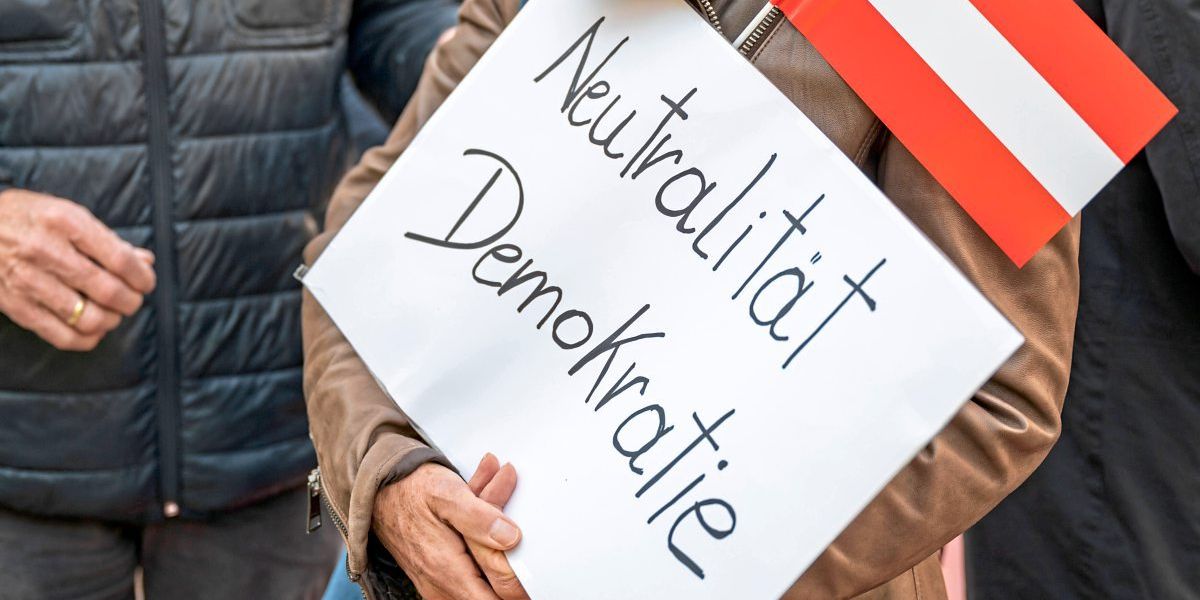 Neutralität
Demokratie